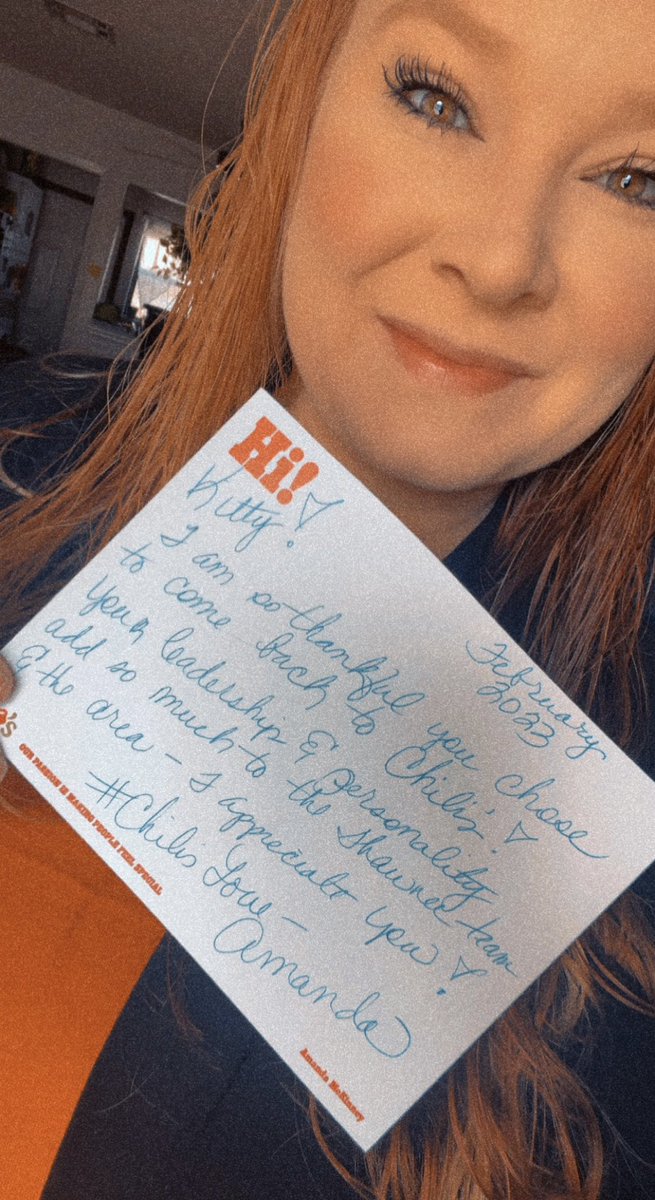 Hi!
Kitty!
February
2023
I am so thankful you chose
to come back to Chili's!
Your leadership & personality
add so much to the Shawnee team
& the area - I appreciate you!
#Chilis Love -
Amanda
's
OUR PASSION IS MAKING PEOPLE FEEL SPECIAL
Amanda McKinney